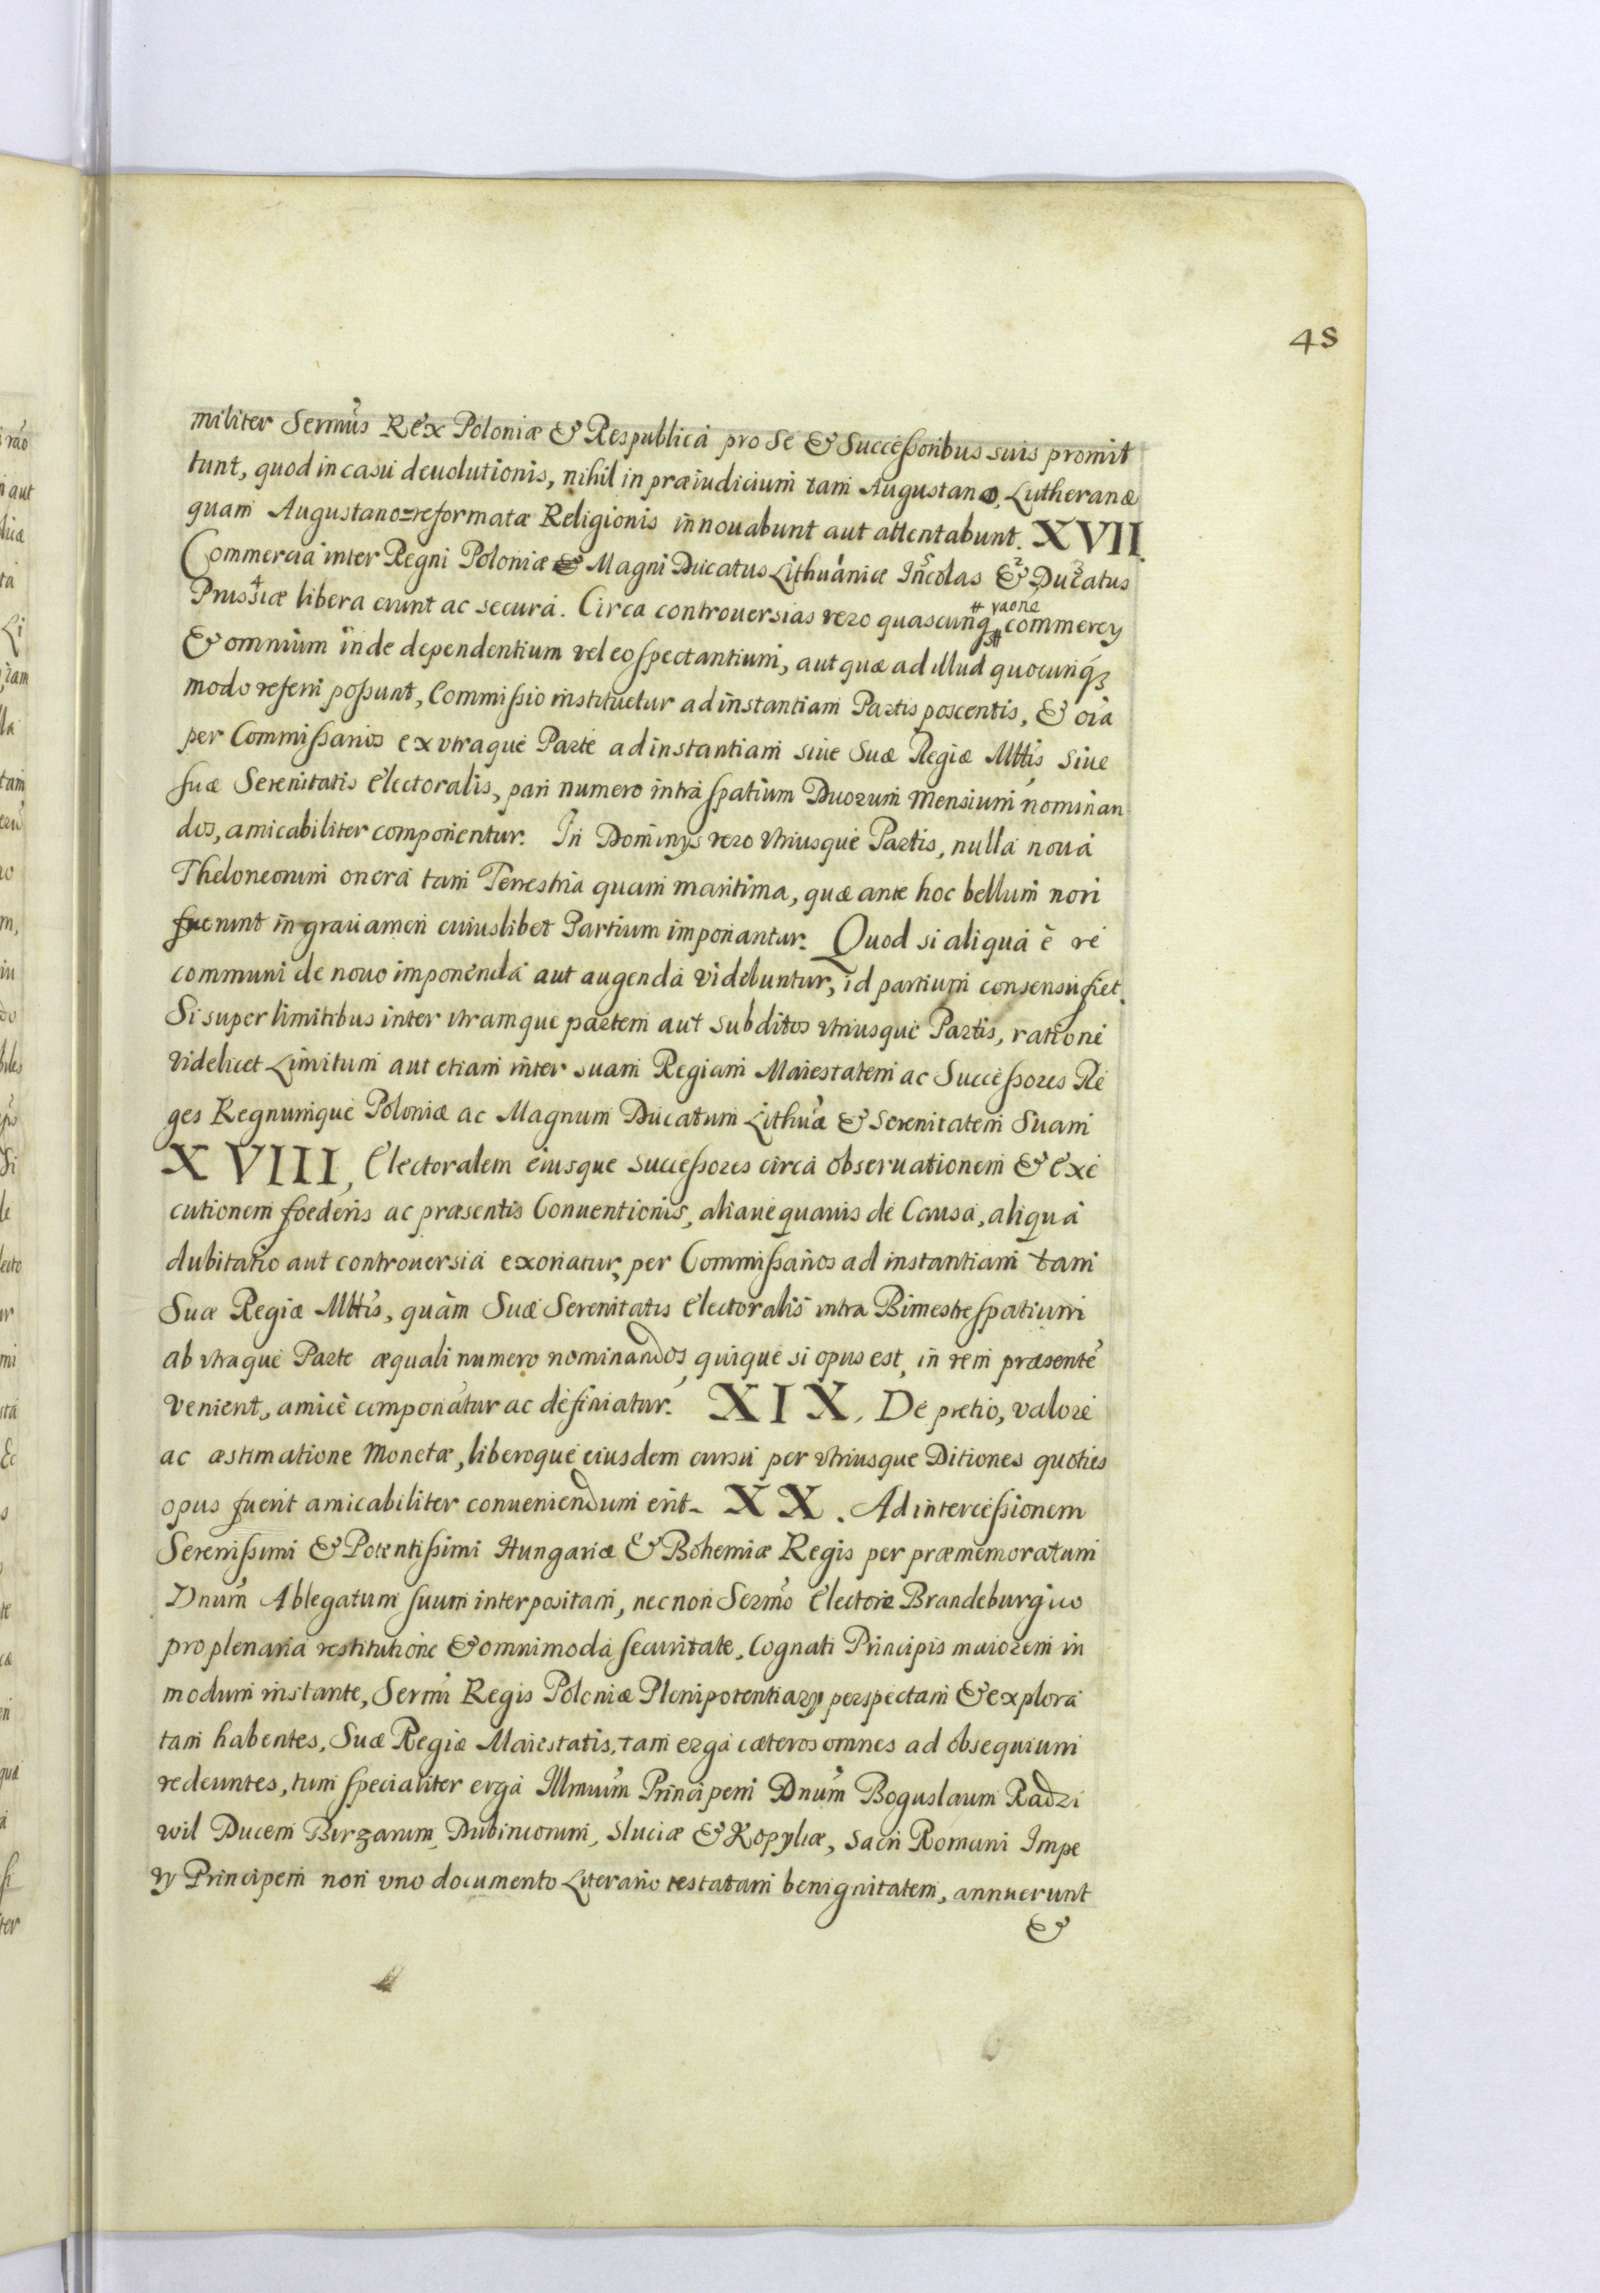 48
militer Sermus Rex Poloniæ & Respublica pro Se & Successoribus suis promit
tunt, quod in casu deuolutionis, nihil in præiudicium tam Augustano, Lutheranæ
quam Augustano=reformatæ Religionis innouabunt aut attentabunt. XVII.
Commercia inter Regni Poloniæ & Magni Ducatus Lithuaniæ Incolas & Ducatus
Prussiæ libera erunt ac secura. Circa controuersias vero quascunq commercy
& omnium inde dependentium vel eo spectantium, aut quæ ad illud quocunq
modo referri possunt, Commissio instituetur ad instantiam Partis poscentis, & oia
per Commissarios ex vtraque Parte ad instantiam siue Suæ Regiæ Mttis siue
suæ Serenitatis Electoralis, pari numero intra spatium Duorum Mensium nominan
dos, amicabiliter componentur. In Dominys vero vtriusque Partis, nulla noua
Theloneorum onera tam Terrestria quam maritima, quæ ante hoc bellum non
fuerunt in grauamen cuiuslibet Partium imponantur. Quod si aliqua è re
communi de nouo imponenda aut augenda videbuntur, id partium consensu fiet.
Si super limitibus inter vtramque partem aut subditos vtriusque Partis, ratione
videlicet Limitum aut etiam inter suam Regiam Maiestatem ac Successores Re
ges Regnumque Poloniæ ac Magnum Ducatum Lithuæ & Serenitatem Suam
XVIII, Electoralem eiusque successores circa obseruationem & exe
cutionem foederis ac præsentis Conuentionis, aliaue quauis de Causa, aliqua
dubitatio aut controuersia exoriatur, per Commissarios ad instantiam tam
Suæ Regiæ Mttis, quàm Suæ Serenitatis Electoralis intra Bimestre spatium
ab vtraque Parte æquali numero nominandos, quique si opus est, in rem præsente
venient, amicè componatur ac definiatur. XIX. De pretio, valore
ac æstimatione Monetæ, liberoque eiusdem cursu per vtriusque Ditiones quoties
opus fuerit amicabiliter conueniendum erit. XX. Ad intercessionem
Serenissimi & Potentissimi Hungariæ & Bohemiæ Regis per præmemoratum
Dnum Ablegatum suum interpositam, nec non Sermo Electore Brandeburgico
pro plenaria restitutione & omnimoda securitate, Cognati Principis maiorem in
modum instante, Sermi Regis Poloniæ Plenipotentiary perspectam & explora
tam habentes, Suæ Regiæ Maiestatis, tam erga cæteros omnes ad obsequium
redeuntes, tum specialiter erga Illmum Principem Dnum Boguslaum Radzi
wil Ducem Birzarum, Dubincorum, Sluciæ & Kopyliæ, Sacri Romani Impe
ry Principem non vno documento Literario testatam benignitatem, annuerunt
&